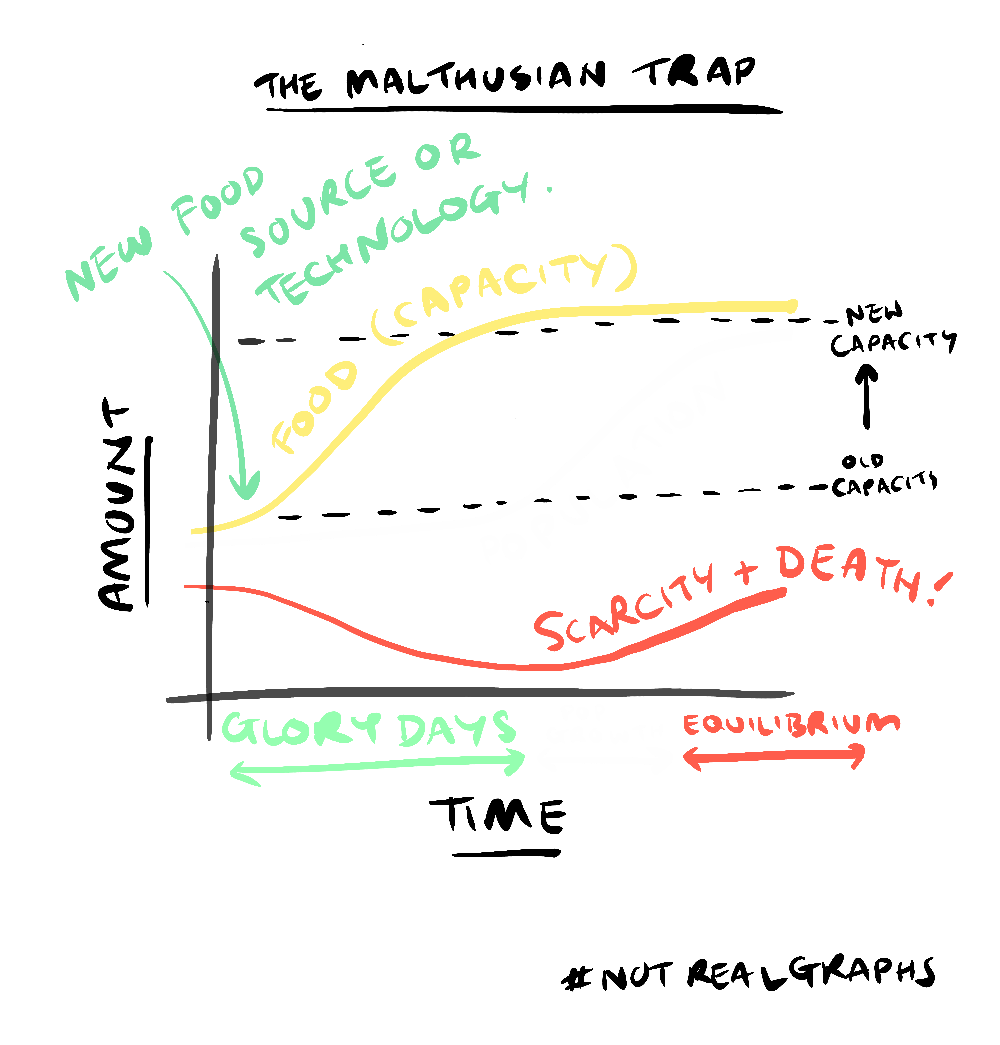 THE MALTHUSIAN TRAP
NEW FOOD
SOURCE OR
TECHNOLOGY.
FOOD (CAPACITY)
NEW
CAPACITY
OLD
CAPACITY
AMOUNT
SCARCITY + DEATH!
GLORY DAYS
EQUILIBRIUM
TIME
#NOT REAL GRAPHS